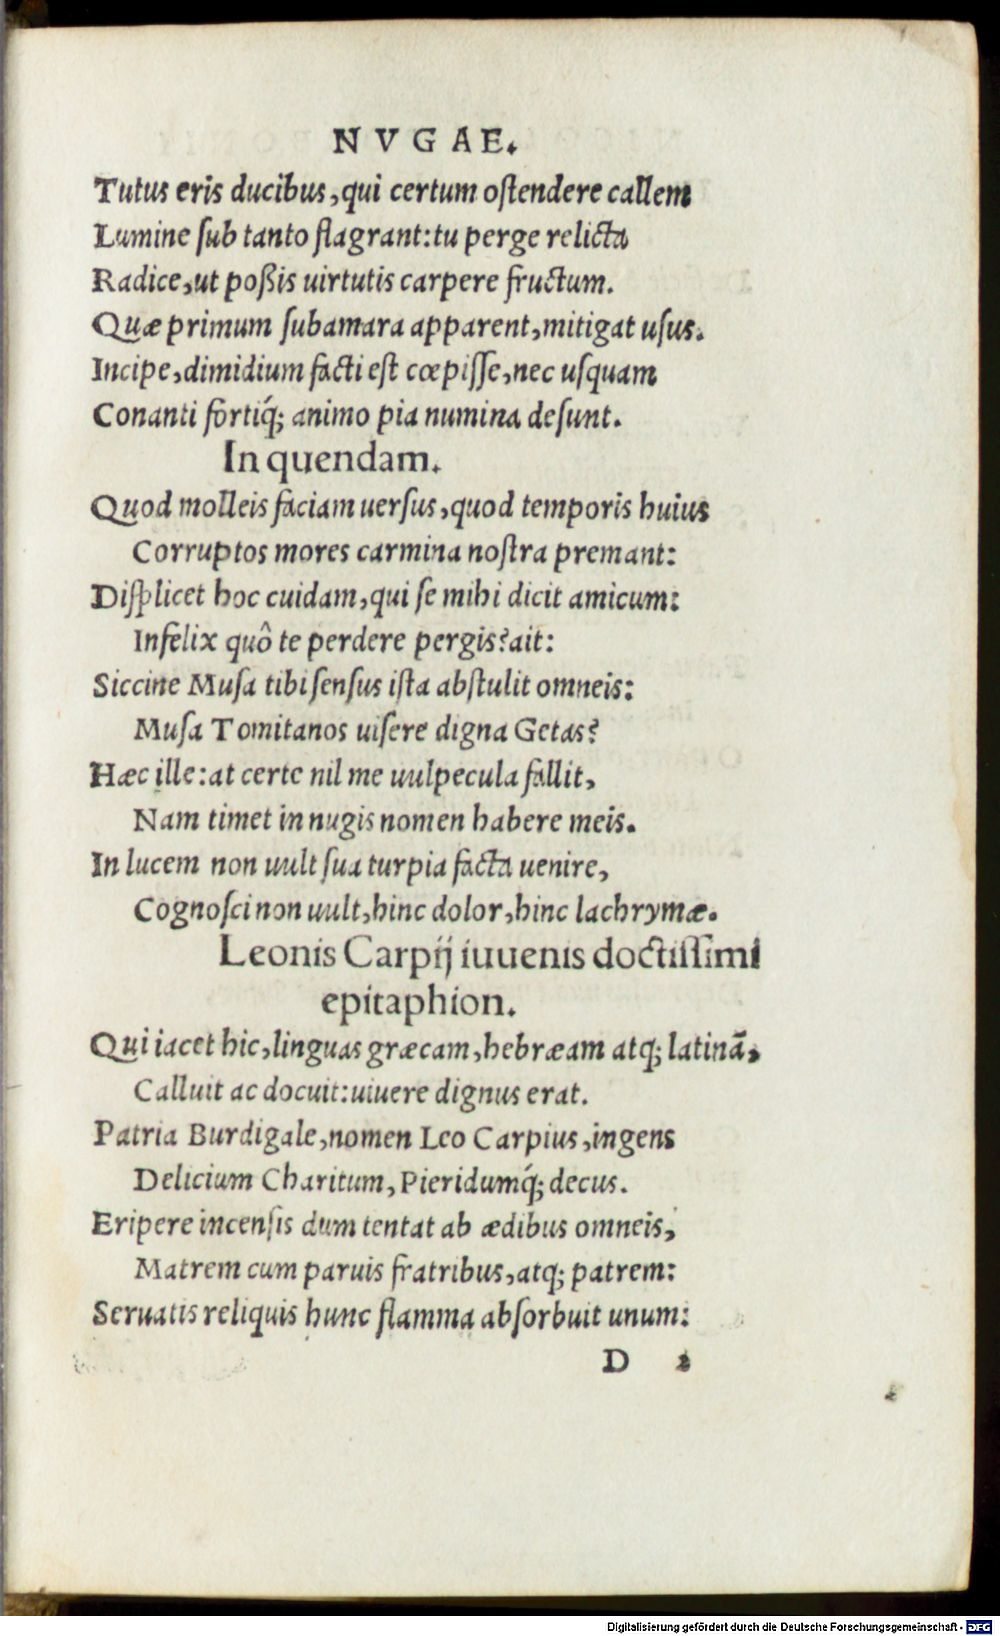 NVGAE.
Tutus eris ducibus, qui certum oſtendere callem
Lumine ſub tanto flagrant: tu perge relicta
Radice, ut poßis uirtutis carpere fructum.
Quæ primum ſubamara apparent, mitigat uſus.
Incipe, dimidium facti eſt cœpiſſe, nec uſquam
Conanti fortiq́; animo pia numina deſunt.
In quendam.
Quod molleis faciam uerſus, quod temporis huius
Corruptos mores carmina noſtra premant:
Diſplicet hoc cuidam, qui ſe mihi dicit amicum:
Infelix quô te perdere pergis? ait:
Siccine Muſa tibi ſenſus iſta abſtulit omneis:
Muſa Tomitanos uiſere digna Getas?
Hæc ille: at certe nil me uulpecula fallit,
Nam timet in nugis nomen habere meis.
In lucem non uult ſua turpia facta uenire,
Cognoſci non uult, hinc dolor, hinc lachrymæ.
Leonis Carpij iuuenis doctiſſimi
epitaphion.
Qui iacet hic, linguas græcam, hebræam atq; latinã,
Calluit ac docuit: uiuere dignus erat.
Patria Burdigale, nomen Leo Carpius, ingens
Delicium Charitum, Pieridumq́; decus.
Eripere incenſis dum tentat ab ædibus omneis,
Matrem cum paruis fratribus, atq; patrem:
Seruatis reliquis hunc flamma abſorbuit unum:
D 2
Digitalisierung gefördert durch die Deutsche Forschungsgemeinschaft - DFG